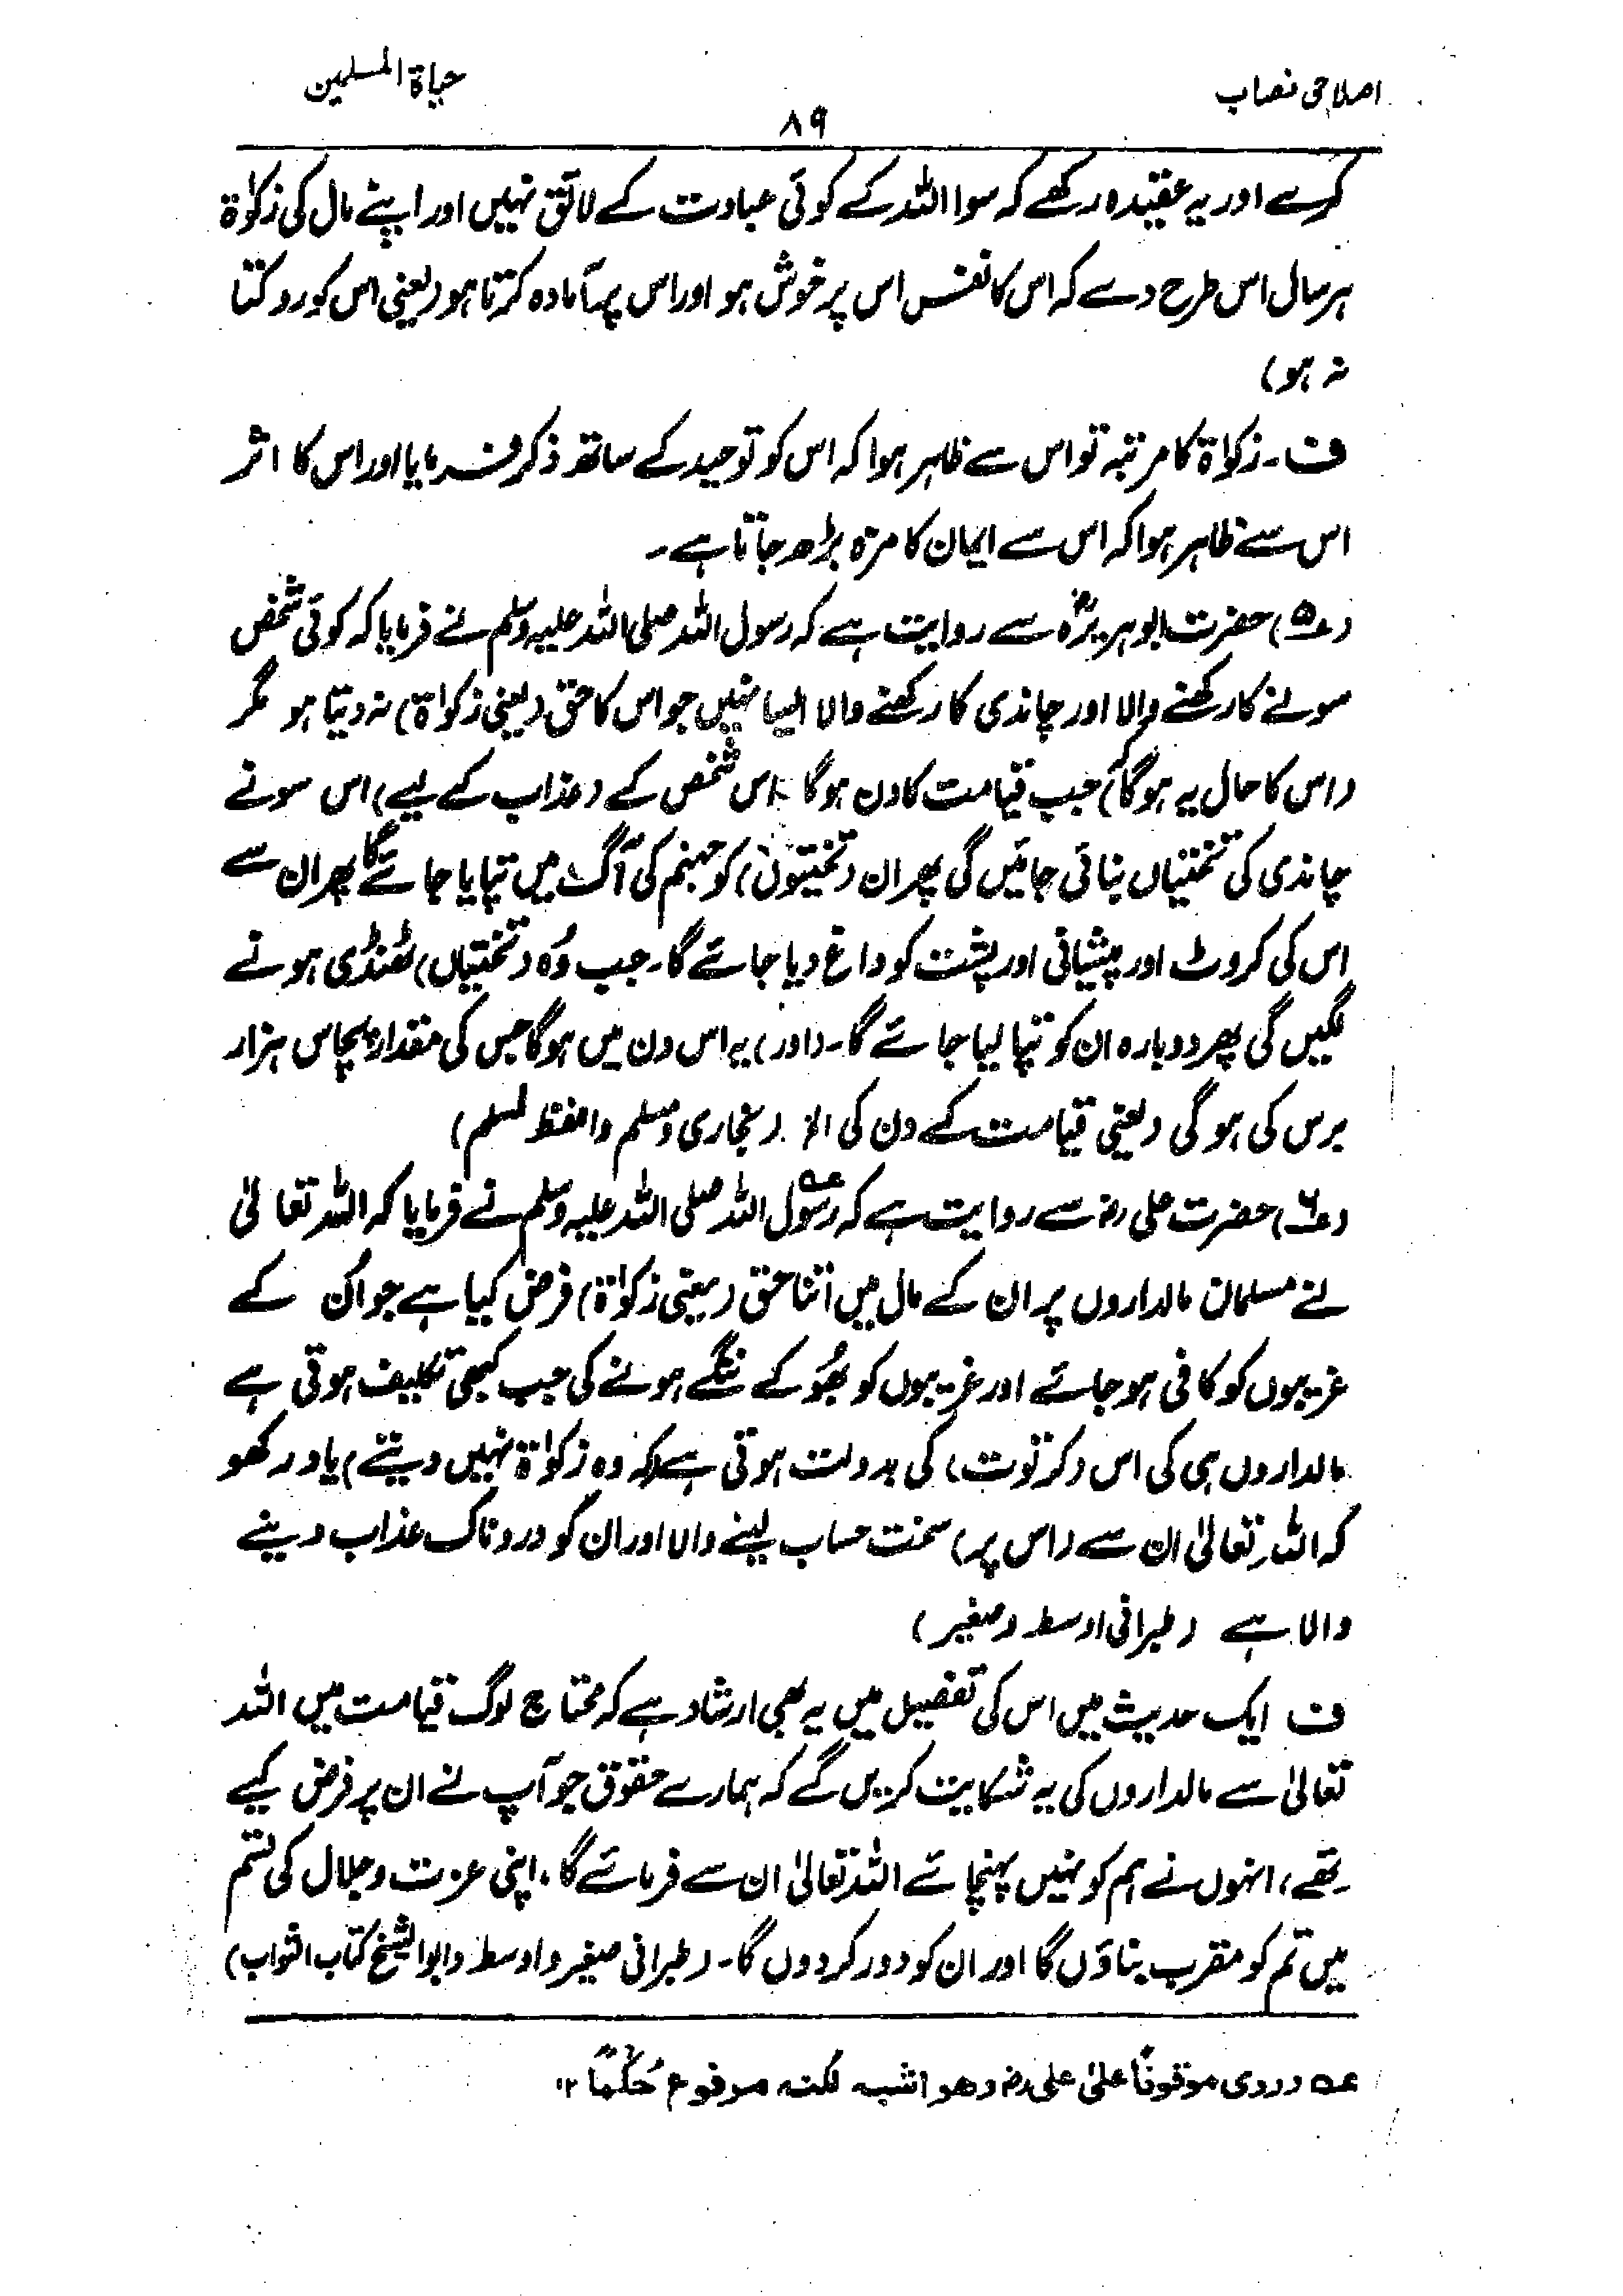 اصلاحی نصاب
حیاۃ المسلمین
۸۹
کرے اور یہ عقیدہ رکھے کہ سوا اللہ کے کوئی عبادت کے لائق نہیں اور اپنے مال کی زکوٰۃ
ہر سال اس طرح دے کہ اس کا نفس اس پر خوش ہو اور اس پر آمادہ کرتا ہو (یعنی اس کو روکتا
نہ ہو)
ف۔ زکوٰۃ کا مرتبہ تو اس سے ظاہر ہوا کہ اس کو توحید کے ساتھ ذکر فرمایا اور اس کا اثر
اس سے ظاہر ہوا کہ اس سے ایمان کا مزہ بڑھ جاتا ہے۔
(۵) حضرت ابوہریرہؓ سے روایت ہے کہ رسول اللہ صلی اللہ علیہ وسلم نے فرمایا کہ کوئی شخص
سونے کا رکھنے والا اور چاندی کا رکھنے والا ایسا نہیں جو اس کا حق (یعنی زکوٰۃ) نہ دیتا ہو مگر
(اس کا حال یہ ہوگا کہ) جب قیامت کا دن ہوگا اس شخص کے (عذاب کے لیے) اس سونے
چاندی کی تختیاں بنائی جائیں گی پھر ان (تختیوں) کو جہنم کی آگ میں تپایا جائے گا پھر ان سے
اس کی کروٹ اور پیشانی اور پشت کو داغ دیا جائے گا۔ جب وُہ (تختیاں) ٹھنڈی ہونے
لگیں گی پھر دوبارہ ان کو تپا لیا جائے گا۔ (اور) یہ اس دن میں ہوگا جس کی مقدار پچاس ہزار
برس کی ہوگی (یعنی قیامت کے دن کی الخ (بخاری ومسلم واللفظ لمسلم)
(۶) حضرت علی رض سے روایت ہے کہ رسول عہ اللہ صلی اللہ علیہ وسلم نے فرمایا کہ اللہ تعالیٰ
نے مسلمان مالداروں پر ان کے مال میں اتنا حق (یعنی زکوٰۃ) فرض کیا ہے جو اُن کے
غریبوں کو کافی ہو جائے اور غریبوں کو بھُوکے ننگے ہونے کی جب کبھی تکلیف ہوتی ہے
مالداروں ہی کی اس (کرتوت) کی بدولت ہوتی ہے (کہ وہ زکوٰۃ نہیں دیتے) یاد رکھو
کہ اللہ تعالیٰ ان سے (اس پر) سخت حساب لینے والا اور ان کو دردناک عذاب دینے
والا ہے (طبرانی اوسط وصغیر)
ف ایک حدیث میں اس کی تفصیل میں یہ بھی ارشاد ہے کہ محتاج لوگ قیامت میں اللہ
تعالیٰ سے مالداروں کی یہ شکایت کریں گے کہ ہمارے حقوق جو آپ نے ان پر فرض کیے
تھے، انہوں نے ہم کو نہیں پہنچائے اللہ تعالیٰ ان سے فرمائے گا، اپنی عزت وجلال کی قسم
میں تم کو مقرب بناؤں گا اور ان کو دور کر دوں گا۔ (طبرانی صغیر واوسط وابوالشیخ کتاب الثواب)
عہ وروی موقوفًا علیٰ علی رض وھو اشبہ لکنہ مرفوع حُکْمًا ۱۲